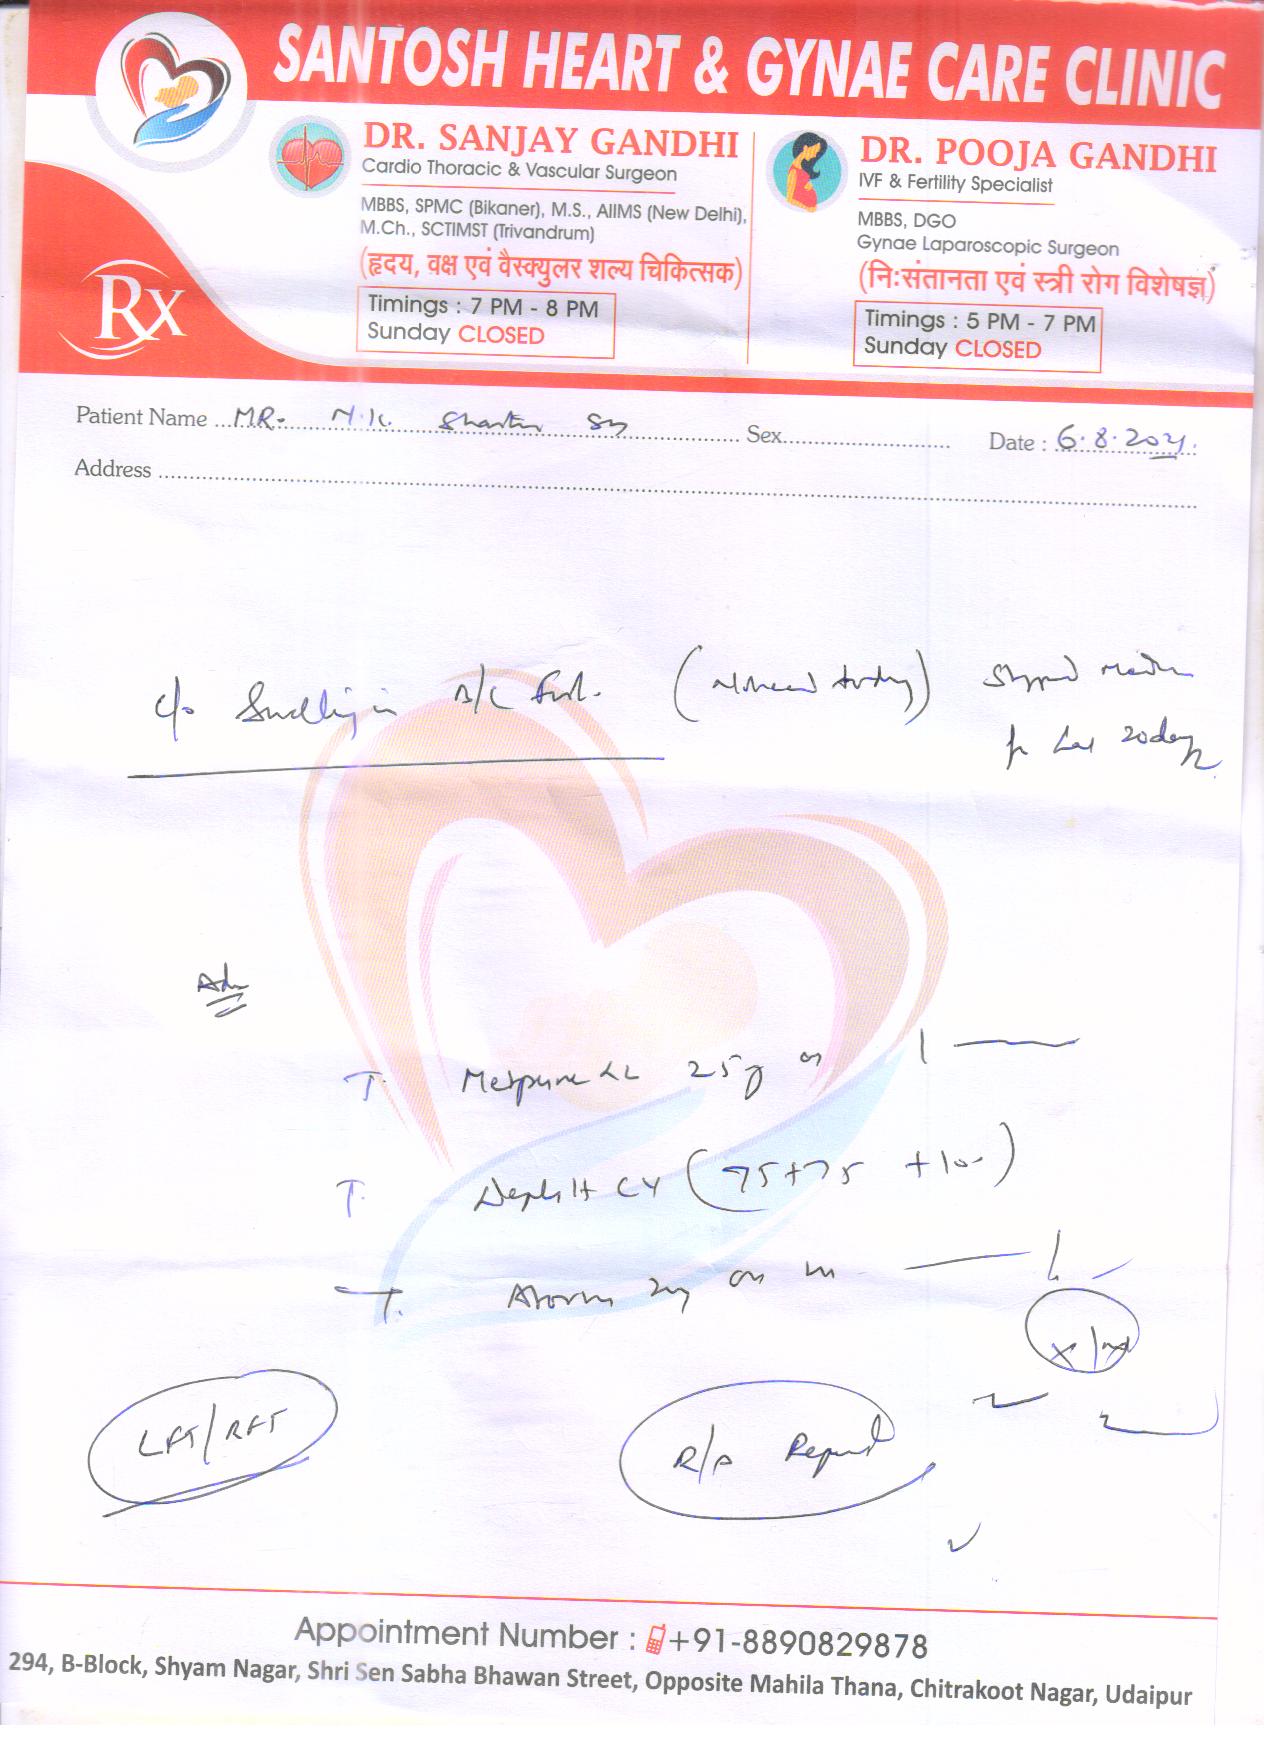 SANTOSH HEART & GYNAE CARE CLINIC
DR. SANJAY GANDHI
Cardio Thoracic & Vascular Surgeon
MBBS, SPMC (Bikaner), M.S., AIIMS (New Delhi),
M.Ch., SCTIMST (Trivandrum)
(हृदय, वक्ष एवं वैस्क्युलर शल्य चिकित्सक)
Timings : 7 PM - 8 PM
Sunday CLOSED
DR. POOJA GANDHI
IVF & Fertility Specialist
MBBS, DGO
Gynae Laparoscopic Surgeon
(नि:संतानता एवं स्त्री रोग विशेषज्ञ)
Timings : 5 PM - 7 PM
Sunday CLOSED
Rx
Patient Name MR. N.K. Sex Date : 6.8.2021.
Address
c/o Swelling in B/L (                ) Stopped
for last 20 days
Adv
T. 25 mg 1
T. CV (75+75 +100)
T. 2mg
LFT/RFT
R/A Report
Appointment Number : +91-8890829878
294, B-Block, Shyam Nagar, Shri Sen Sabha Bhawan Street, Opposite Mahila Thana, Chitrakoot Nagar, Udaipur